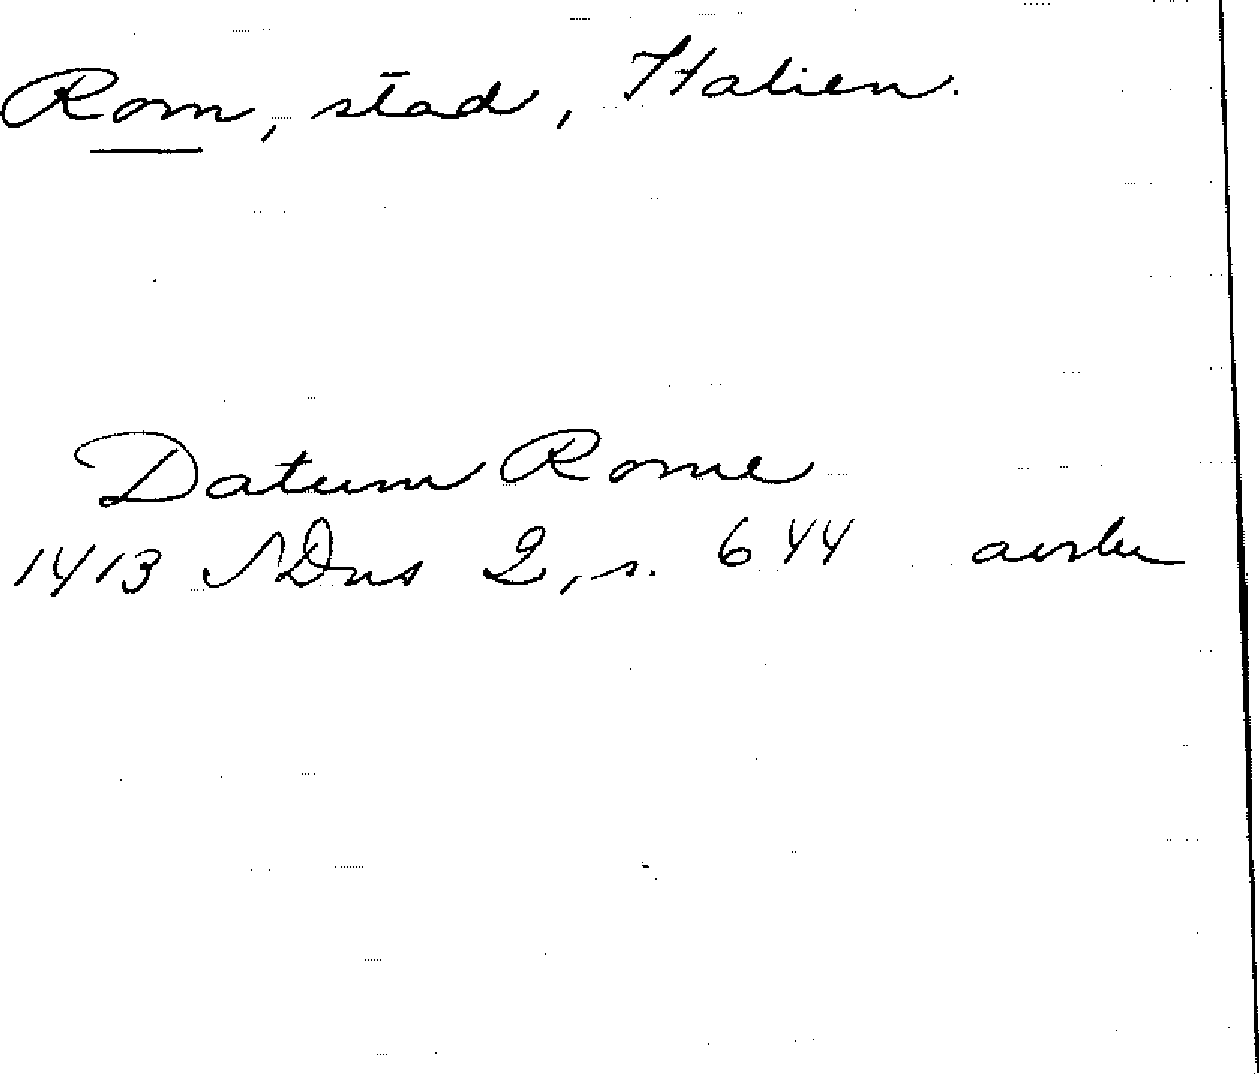 Rom, stad, Italien.
Datum Rome
1413 SDns 2, s. 644 avskr